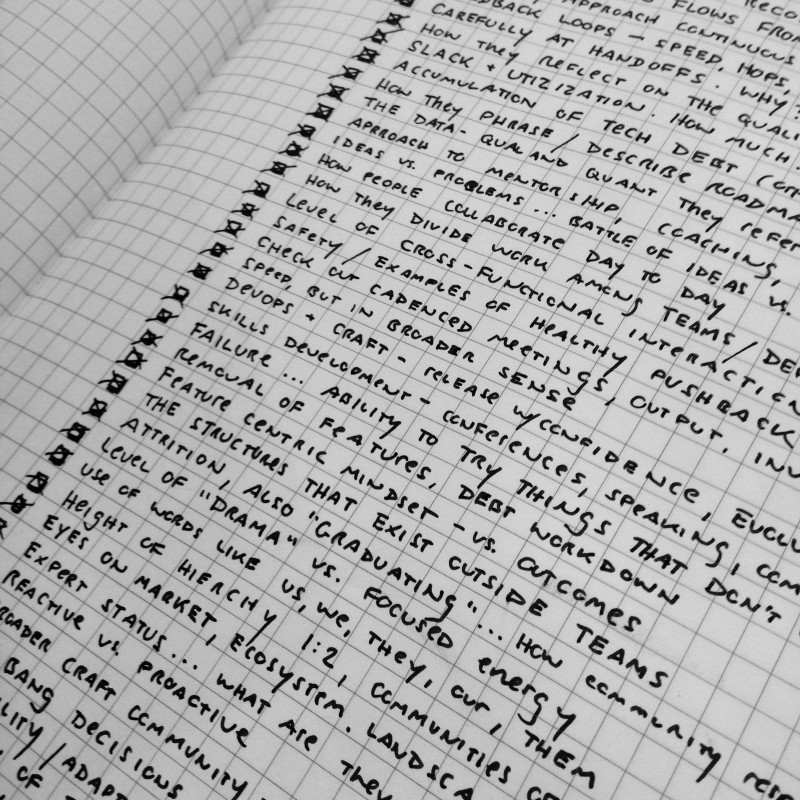 RECO
FLOWS FROM
APPROACH CONTINUOUS
FEEDBACK LOOPS - SPEED, HOPS,
CAREFULLY AT HANDOFFS. WHY?
HOW THEY REFLECT ON THE QUALI
SLACK + UTIZIZATION. HOW MUCH
ACCUMULATION OF TECH DEBT (OTH
HOW THEY PHRASE / DESCRIBE ROADMA
THE DATA - QUAL AND QUANT THEY REFER
APRROACH TO MENTORSHIP, COACHING,
IDEAS VS. PROBLEMS ... BATTLE OF IDEAS VS.
HOW PEOPLE COLLABORATE DAY TO DAY
HOW THEY DIVIDE WORK AMONG TEAMS / DEP
LEVEL OF CROSS-FUNCTIONAL INTERACTION
SAFETY / EXAMPLES OF HEALTHY PUSHBACK
CHECK OUT CADENCED MEETINGS, OUTPUT, INV
SPEED, BUT IN BROADER SENSE
DEVOPS + CRAFT - RELEASE W/CONFIDENCE, EVOLU
SKILLS DEVELOPMENT - CONFERENCES, SPEAKING, COM
FAILURE ... ABILITY TO TRY THINGS THAT DON'T
REMOVAL OF FEATURES, DEBT WORKDOWN
FEATURE CENTRIC MINDSET - VS. OUTCOMES
THE STRUCTURES THAT EXIST OUTSIDE TEAMS
ATTRITION, ALSO "GRADUATING" ... HOW COMMUNITY RESP
LEVEL OF "DRAMA" VS. FOCUSED ENERGY
USE OF WORDS LIKE US, WE, THEY, OUR, THEM
HEIGHT OF HIERCHY 1:2, COMMUNITIES OF
EYES ON MARKET, ECOSYSTEM, LANDSCA
EXPERT STATUS... WHAT ARE THEY
REACTIVE VS. PROACTIVE
ROADER CRAFT COMMUNITY
BANG DECISIONS
LITY / ADAPT
OF